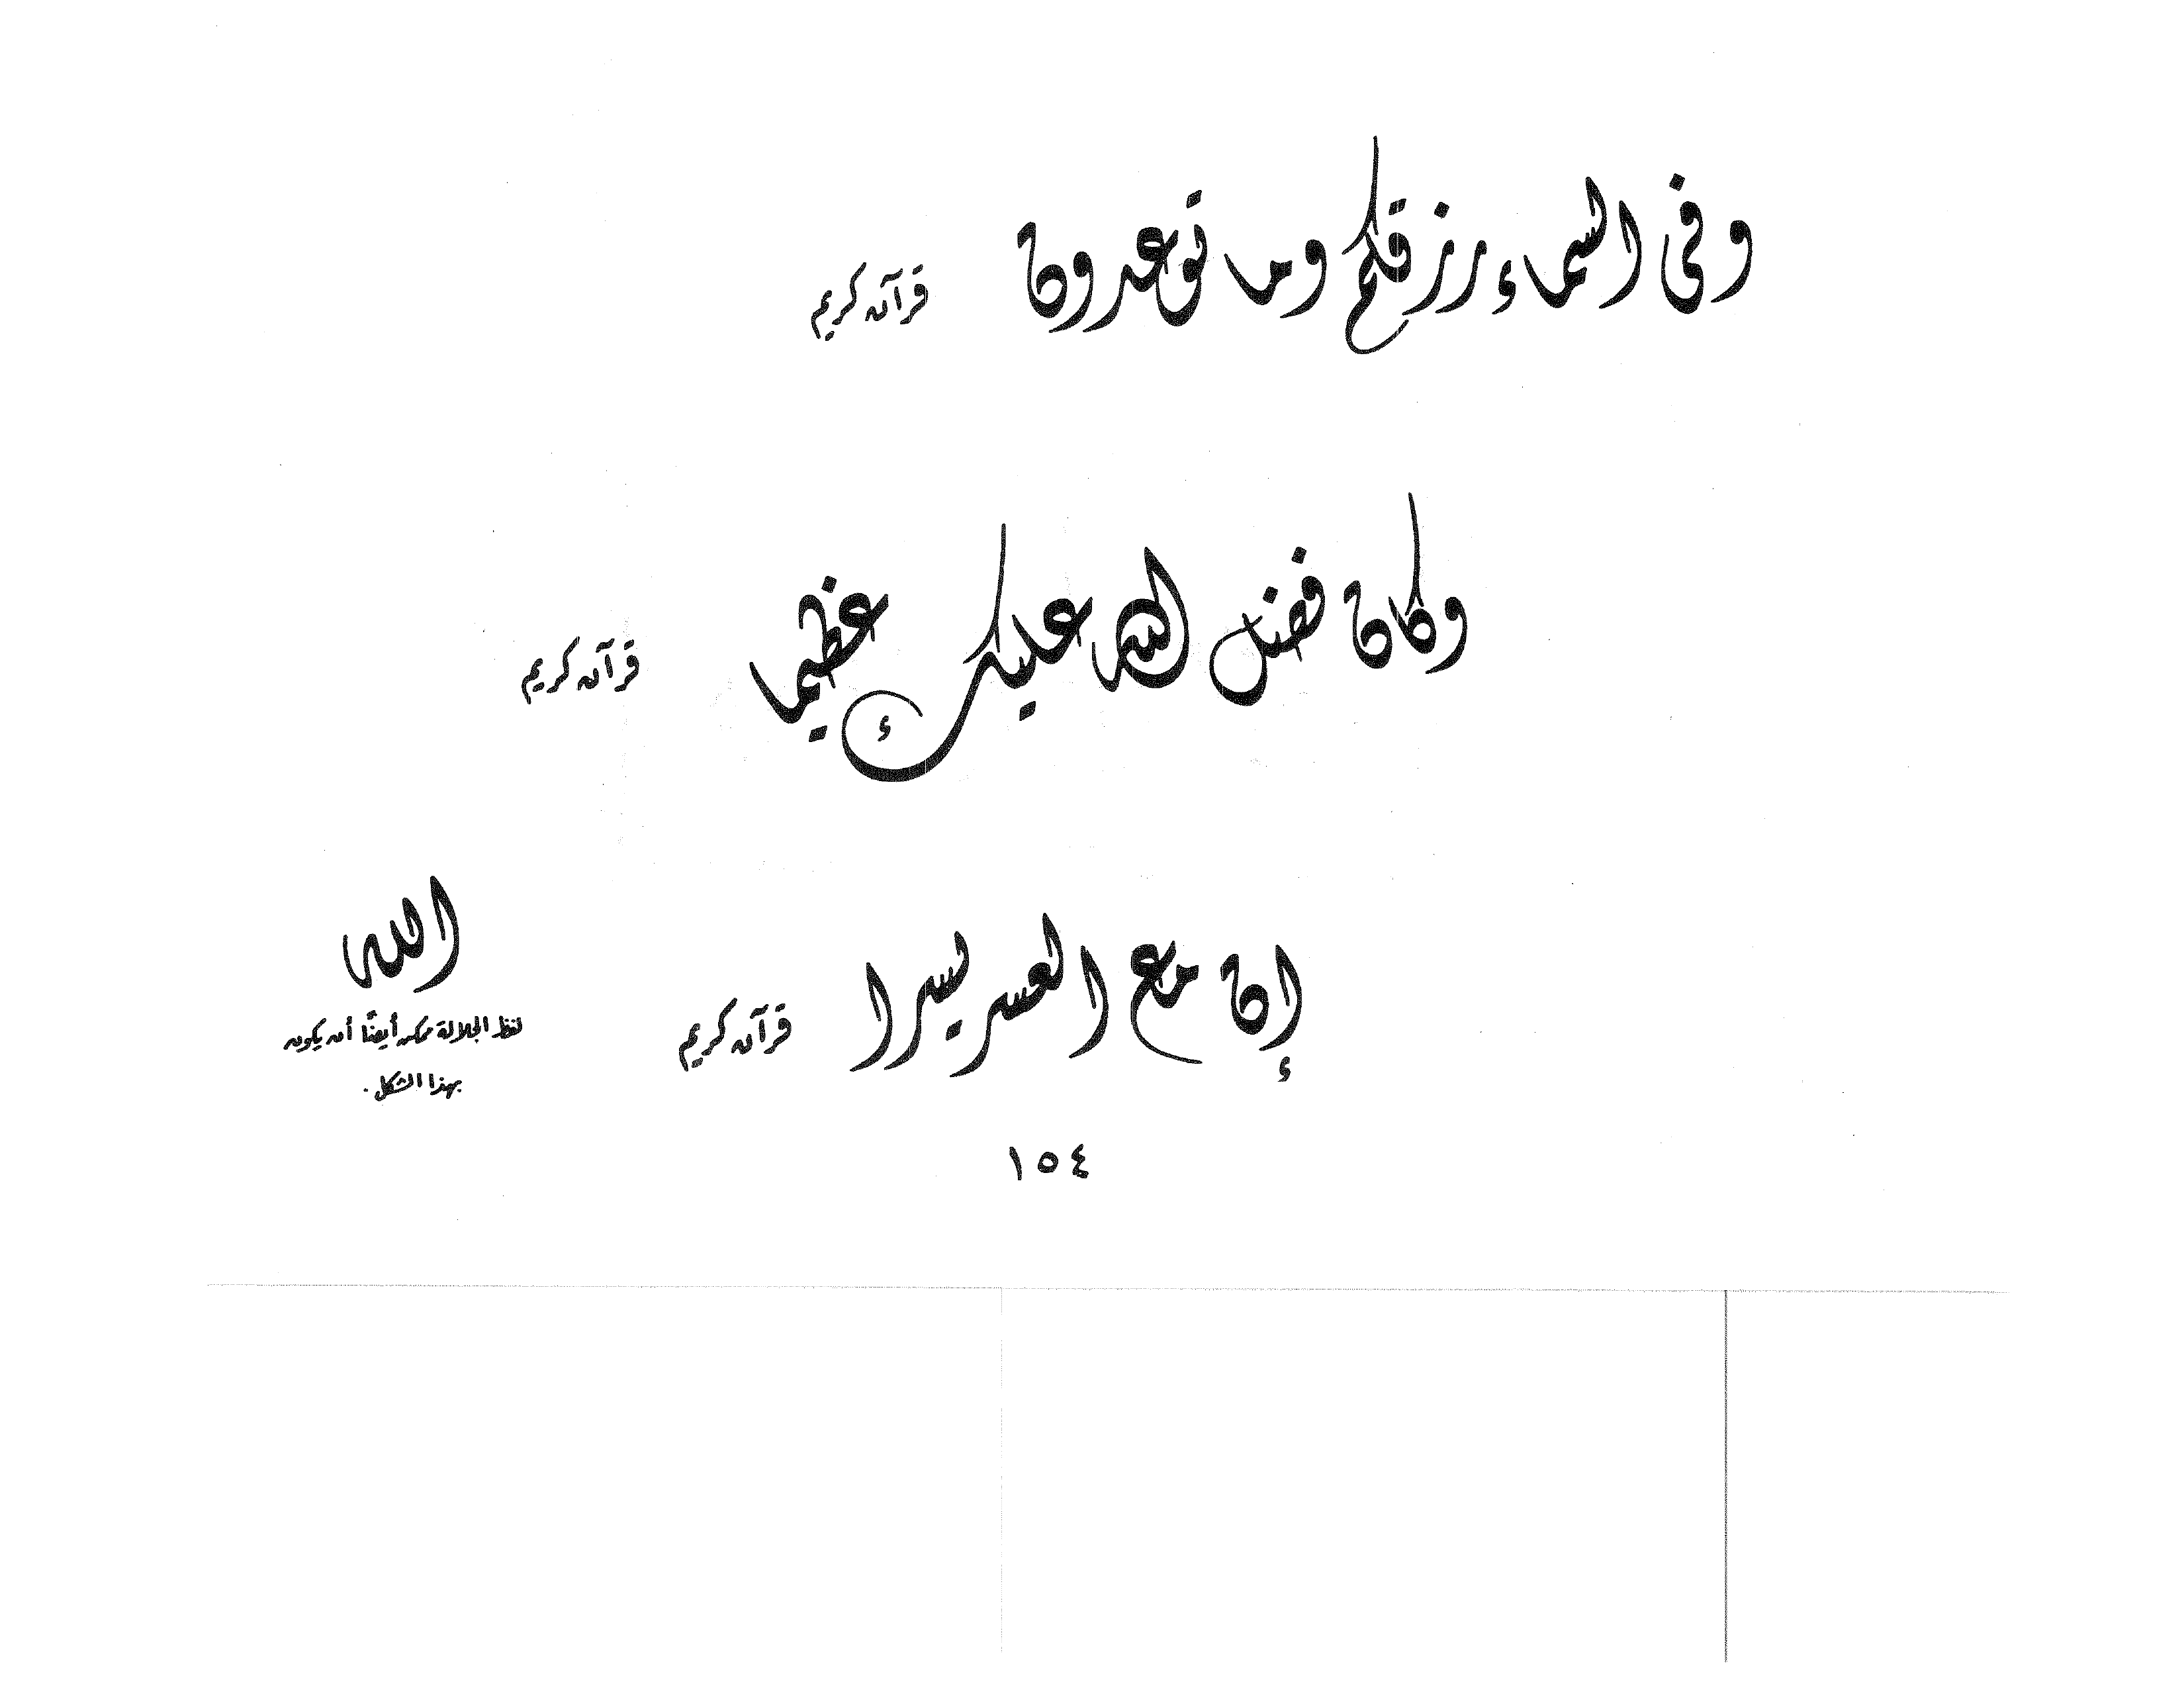 وفى السماء رزقكم وما توعدون
قرآن كريم
وكان فضل الله عليك عظيما
قرآن كريم
إن مع العسر يسرا
قرآن كريم
الله
لفظ الجلالة ممكن أيضًا أن يكون
بهذا الشكل.
١٥٤